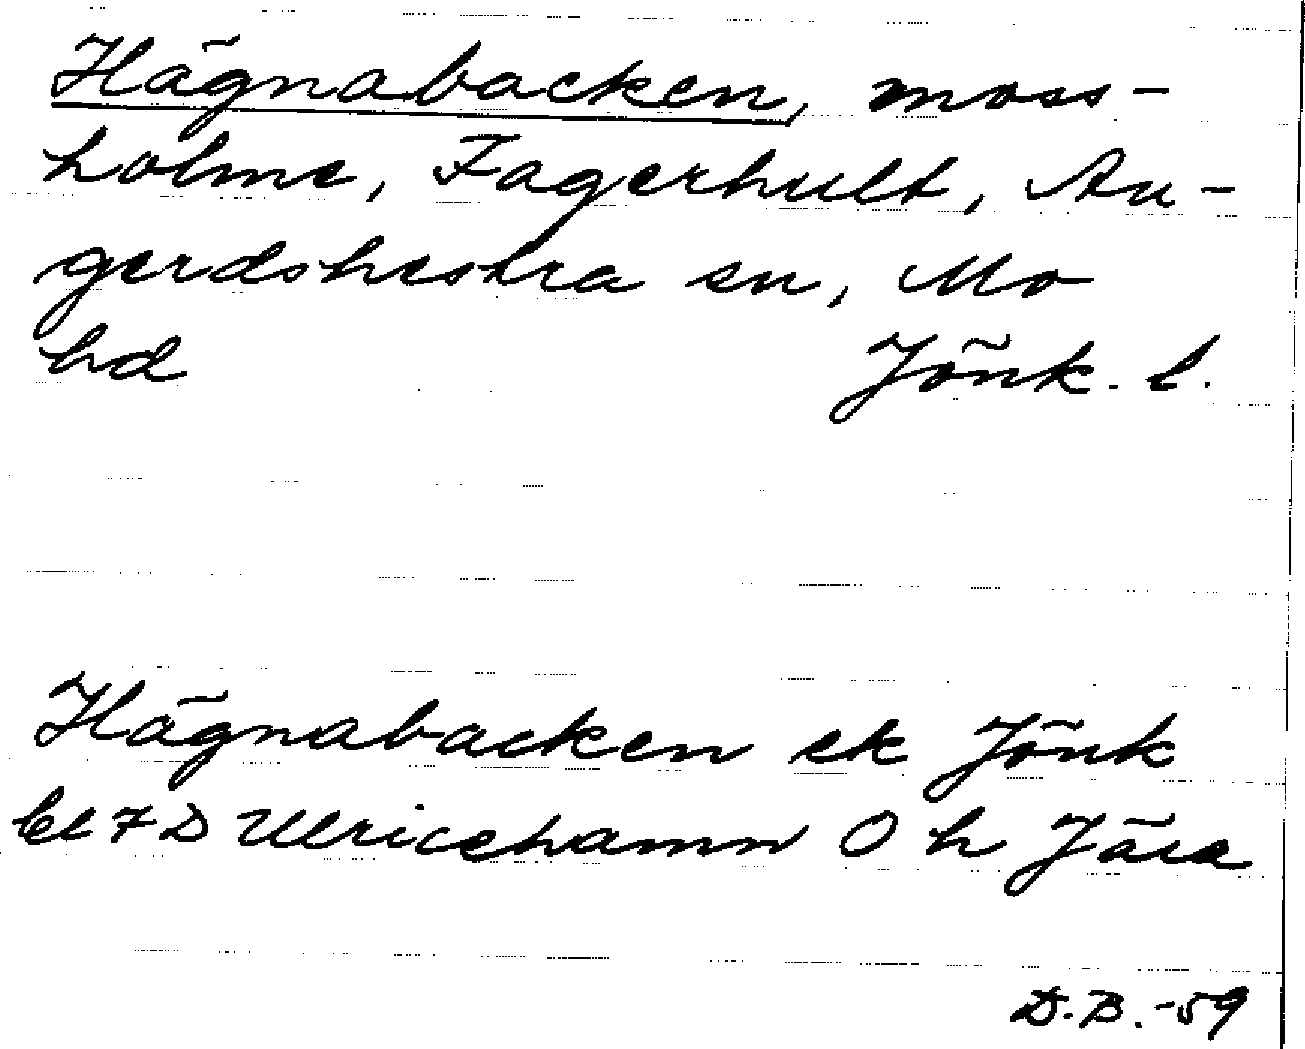 Hägnabacken, moss-
holme, Fagerhult, An-
gerdshestra sn, Mo
hd Jönk. l.
Hägnabacken ek Jönk
bl 7 D Ulricehamn O h Jära
D.B. -59